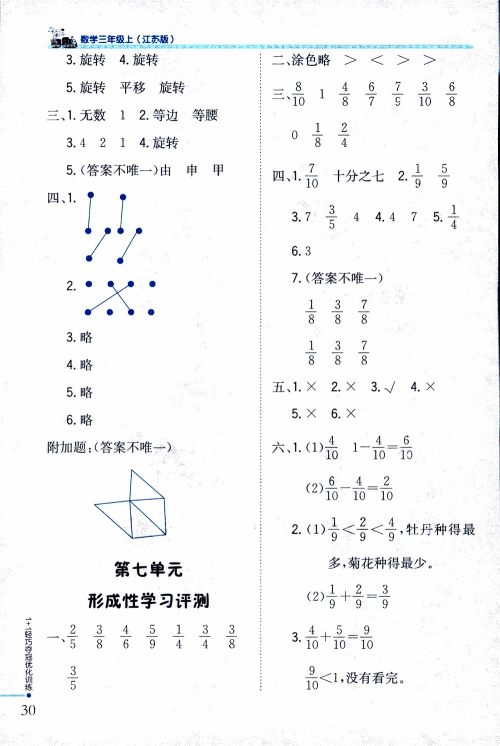 数学三年级上(江苏版)
3.旋转 4.旋转
5.旋转 平移 旋转
三、1.无数 1 2.等边 等腰
3.4 2 1 4.旋转
5.(答案不唯一)由 申 甲
四、1.
2.
3.略
4.略
5.略
6.略
附加题:(答案不唯一)
第七单元
形成性学习评测
一、2/5 3/8 4/6 5/9 1/4 3/4 3/8
3/5
二、涂色略 > < > >
三、8/10 1 4/8 6/7 7/9 3/10 6/8
0 1/8 2/4
四、1.7/10 十分之七 2.1/9 5/9
3.7 3/5 4 4.4 7 5.1/4
6.3
7.(答案不唯一)
1/8 3/8 7/8
1/8 3/8 7/8
五、1.× 2.× 3.√ 4.×
5.× 6.×
六、1.(1)4/10 1-4/10=6/10
(2)6/10-4/10=2/10
2.(1)1/9<2/9<4/9,牡丹种得最
多,菊花种得最少。
(2)1/9+2/9=3/9
3.4/10+5/10=9/10
9/10<1,没有看完。
1+1轻巧夺冠优化训练
30